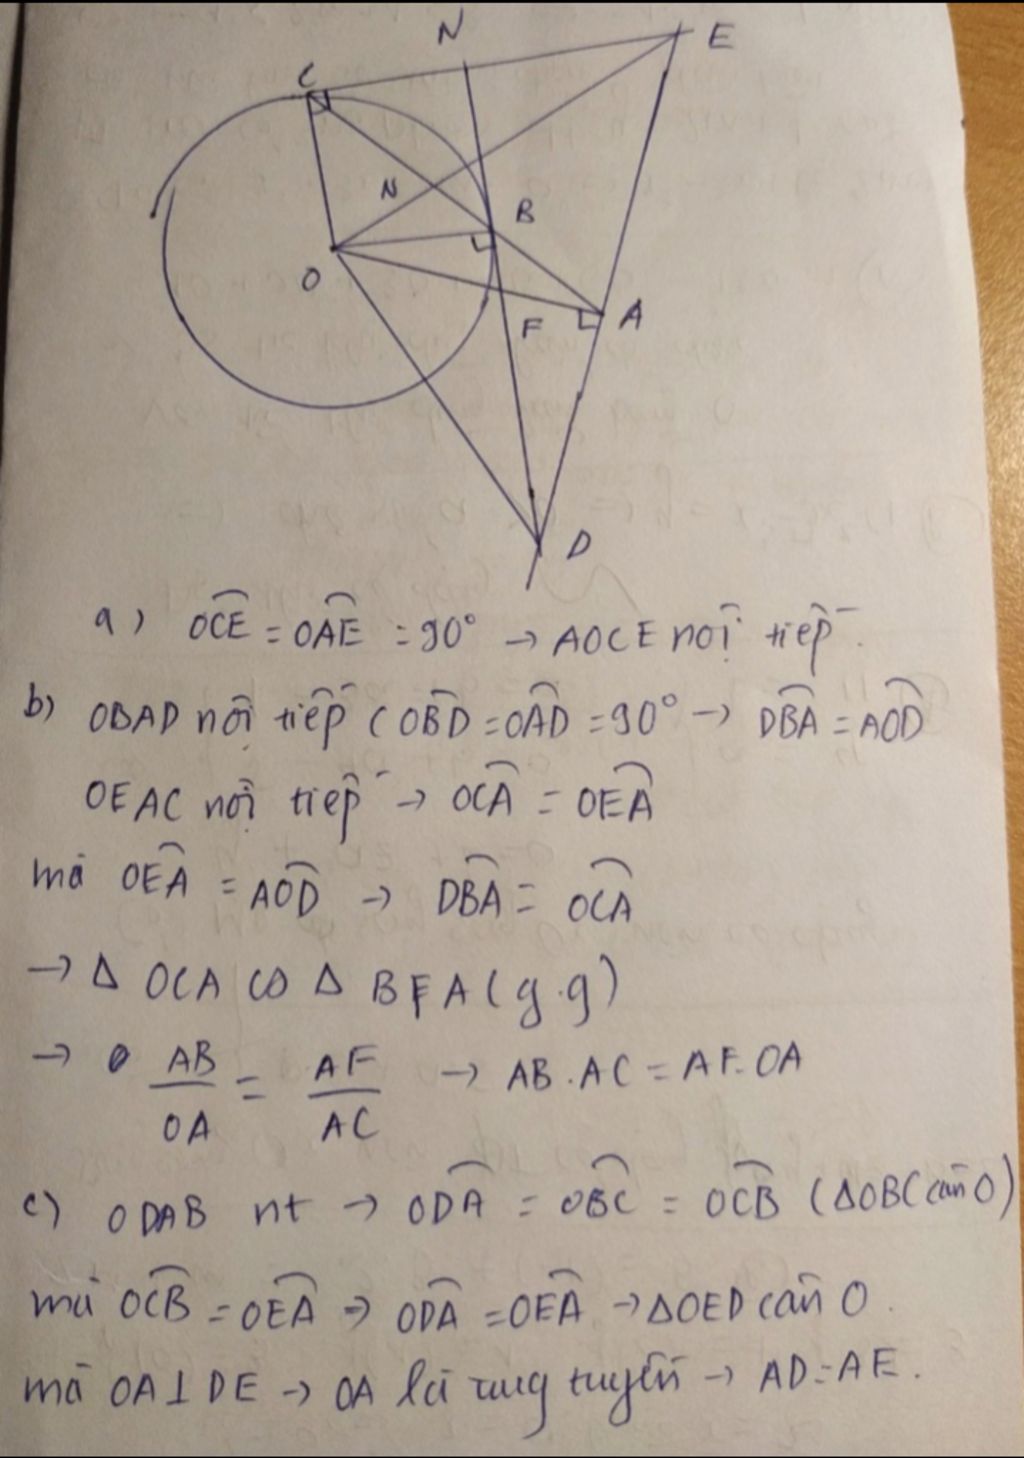 N
E
C
N
B
O
F
A
D
a) OCE = OAE = 90° → AOCE nội tiếp.
b) OBAD nội tiếp (OBD = OAD = 90° → DBA = AOD
OEAC nội tiếp → OCA = OEA
mà OEA = AOD → DBA = OCA
→ Δ OCA ∽ Δ BFA (g.g)
→ AB/OA = AF/AC → AB.AC = AF.OA
c) ODAB nt → ODA = OBC = OCB (ΔOBC cân O)
mà OCB = OEA → ODA = OEA → ΔOED cân O.
mà OA ⊥ DE → OA là trung tuyến → AD = AE.